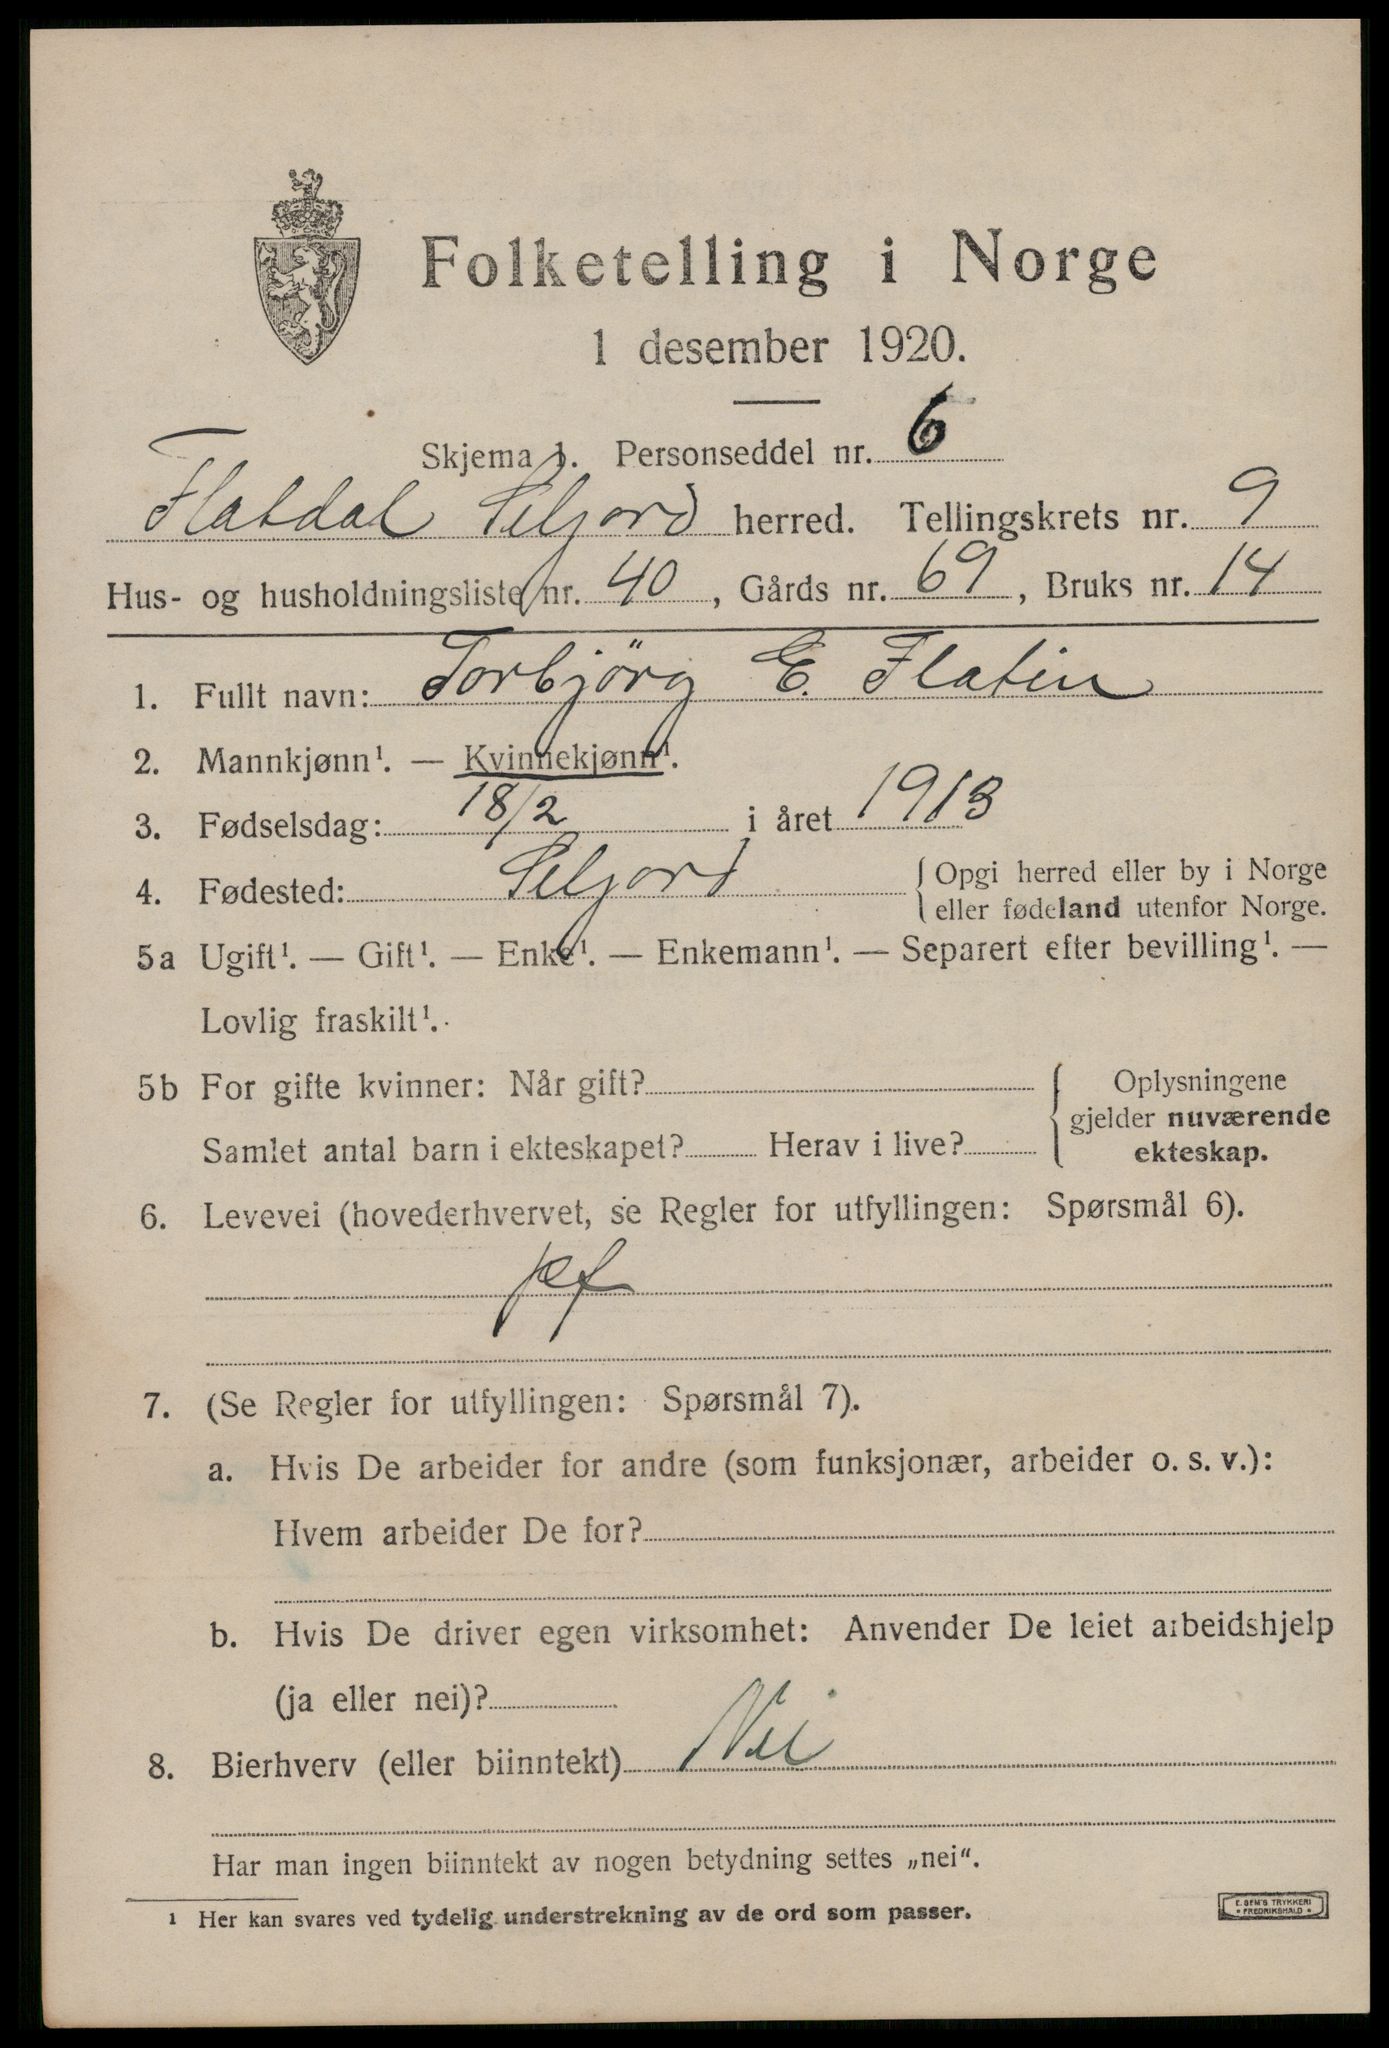 Folketelling i Norge
1 desember 1920.
Skjema 1. Personseddel nr. 6
Flatdal Seljord herred. Tellingskrets nr. 9
Hus- og husholdningsliste nr. 40, Gårds nr. 69, Bruks nr. 14
1. Fullt navn: Torbjörg E. Flatin
2. Mannkjønn¹. — Kvinnekjønn¹.
3. Fødselsdag: 18/2 i året 1913
4. Fødested: Seljord { Opgi herred eller by i Norge
eller fødeland utenfor Norge.
5a Ugift¹. — Gift¹. — Enke¹. — Enkemann¹. — Separert efter bevilling¹. —
Lovlig fraskilt¹.
5b For gifte kvinner: Når gift? { Oplysningene
gjelder nuværende
Samlet antal barn i ekteskapet? Herav i live? ekteskap.
6. Levevei (hovederhvervet, se Regler for utfyllingen: Spørsmål 6).
pf
7. (Se Regler for utfyllingen: Spørsmål 7).
a. Hvis De arbeider for andre (som funksjonær, arbeider o. s. v.):
Hvem arbeider De for?
b. Hvis De driver egen virksomhet: Anvender De leiet arbeidshjelp
(ja eller nei)?
8. Bierhverv (eller biinntekt) Nei
Har man ingen biinntekt av nogen betydning settes „nei“.
¹ Her kan svares ved tydelig understrekning av de ord som passer.
E. SEM'S TRYKKERI
* FREDRIKSHALD *